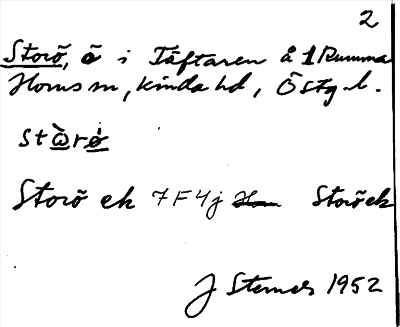 2
Storö, ö i Täftaren å 1 Rumma
Horns sn, Kinda hd, Östg. l.
stὼrǿ
Storö ek 7F4j Storö ek
J Sterner 1952